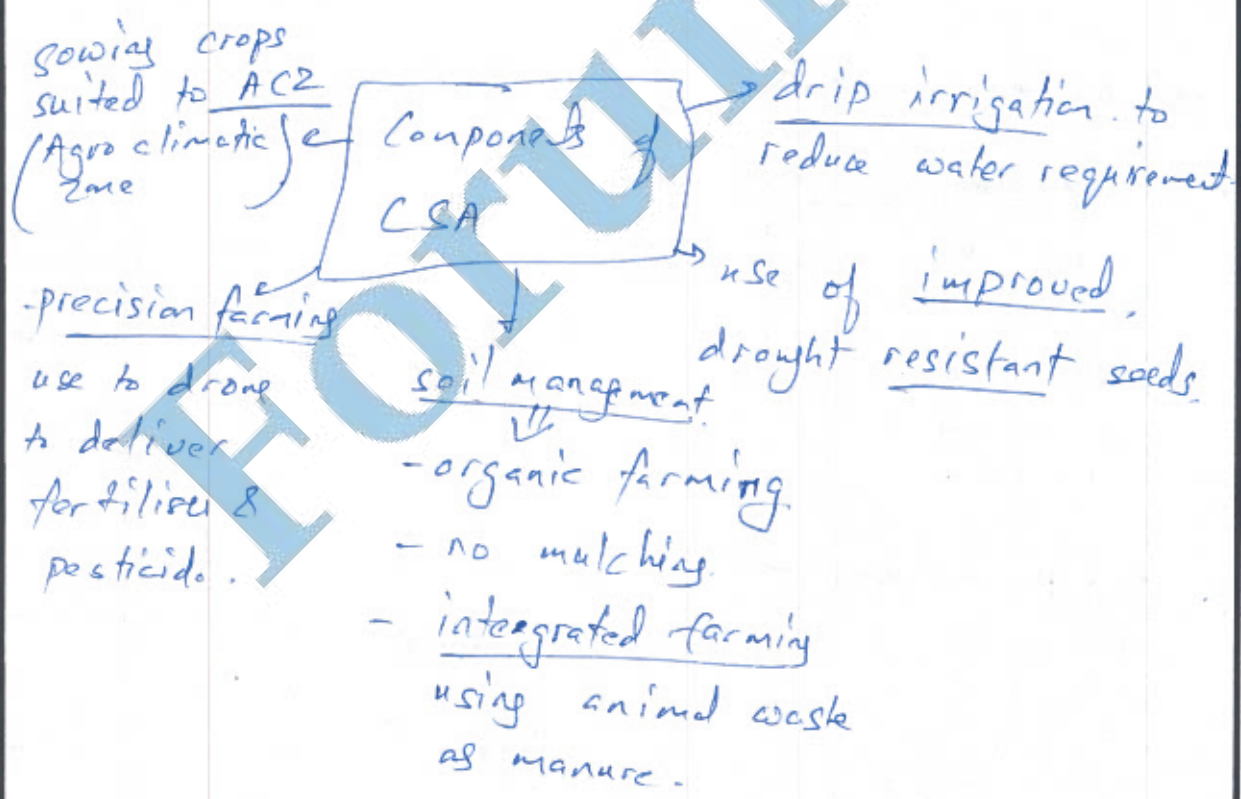 sowing crops
suited to ACZ
(Agro climatic
zone)
Components of
CSA
drip irrigation to
reduce water requirement
use of improved,
drought resistant seeds.
-precision farming
use to drone
to deliver
fertiliser &
pesticide.
soil managment
-organic farming
- no mulching.
- intergrated farming
using animal waste
as manure.
Forum